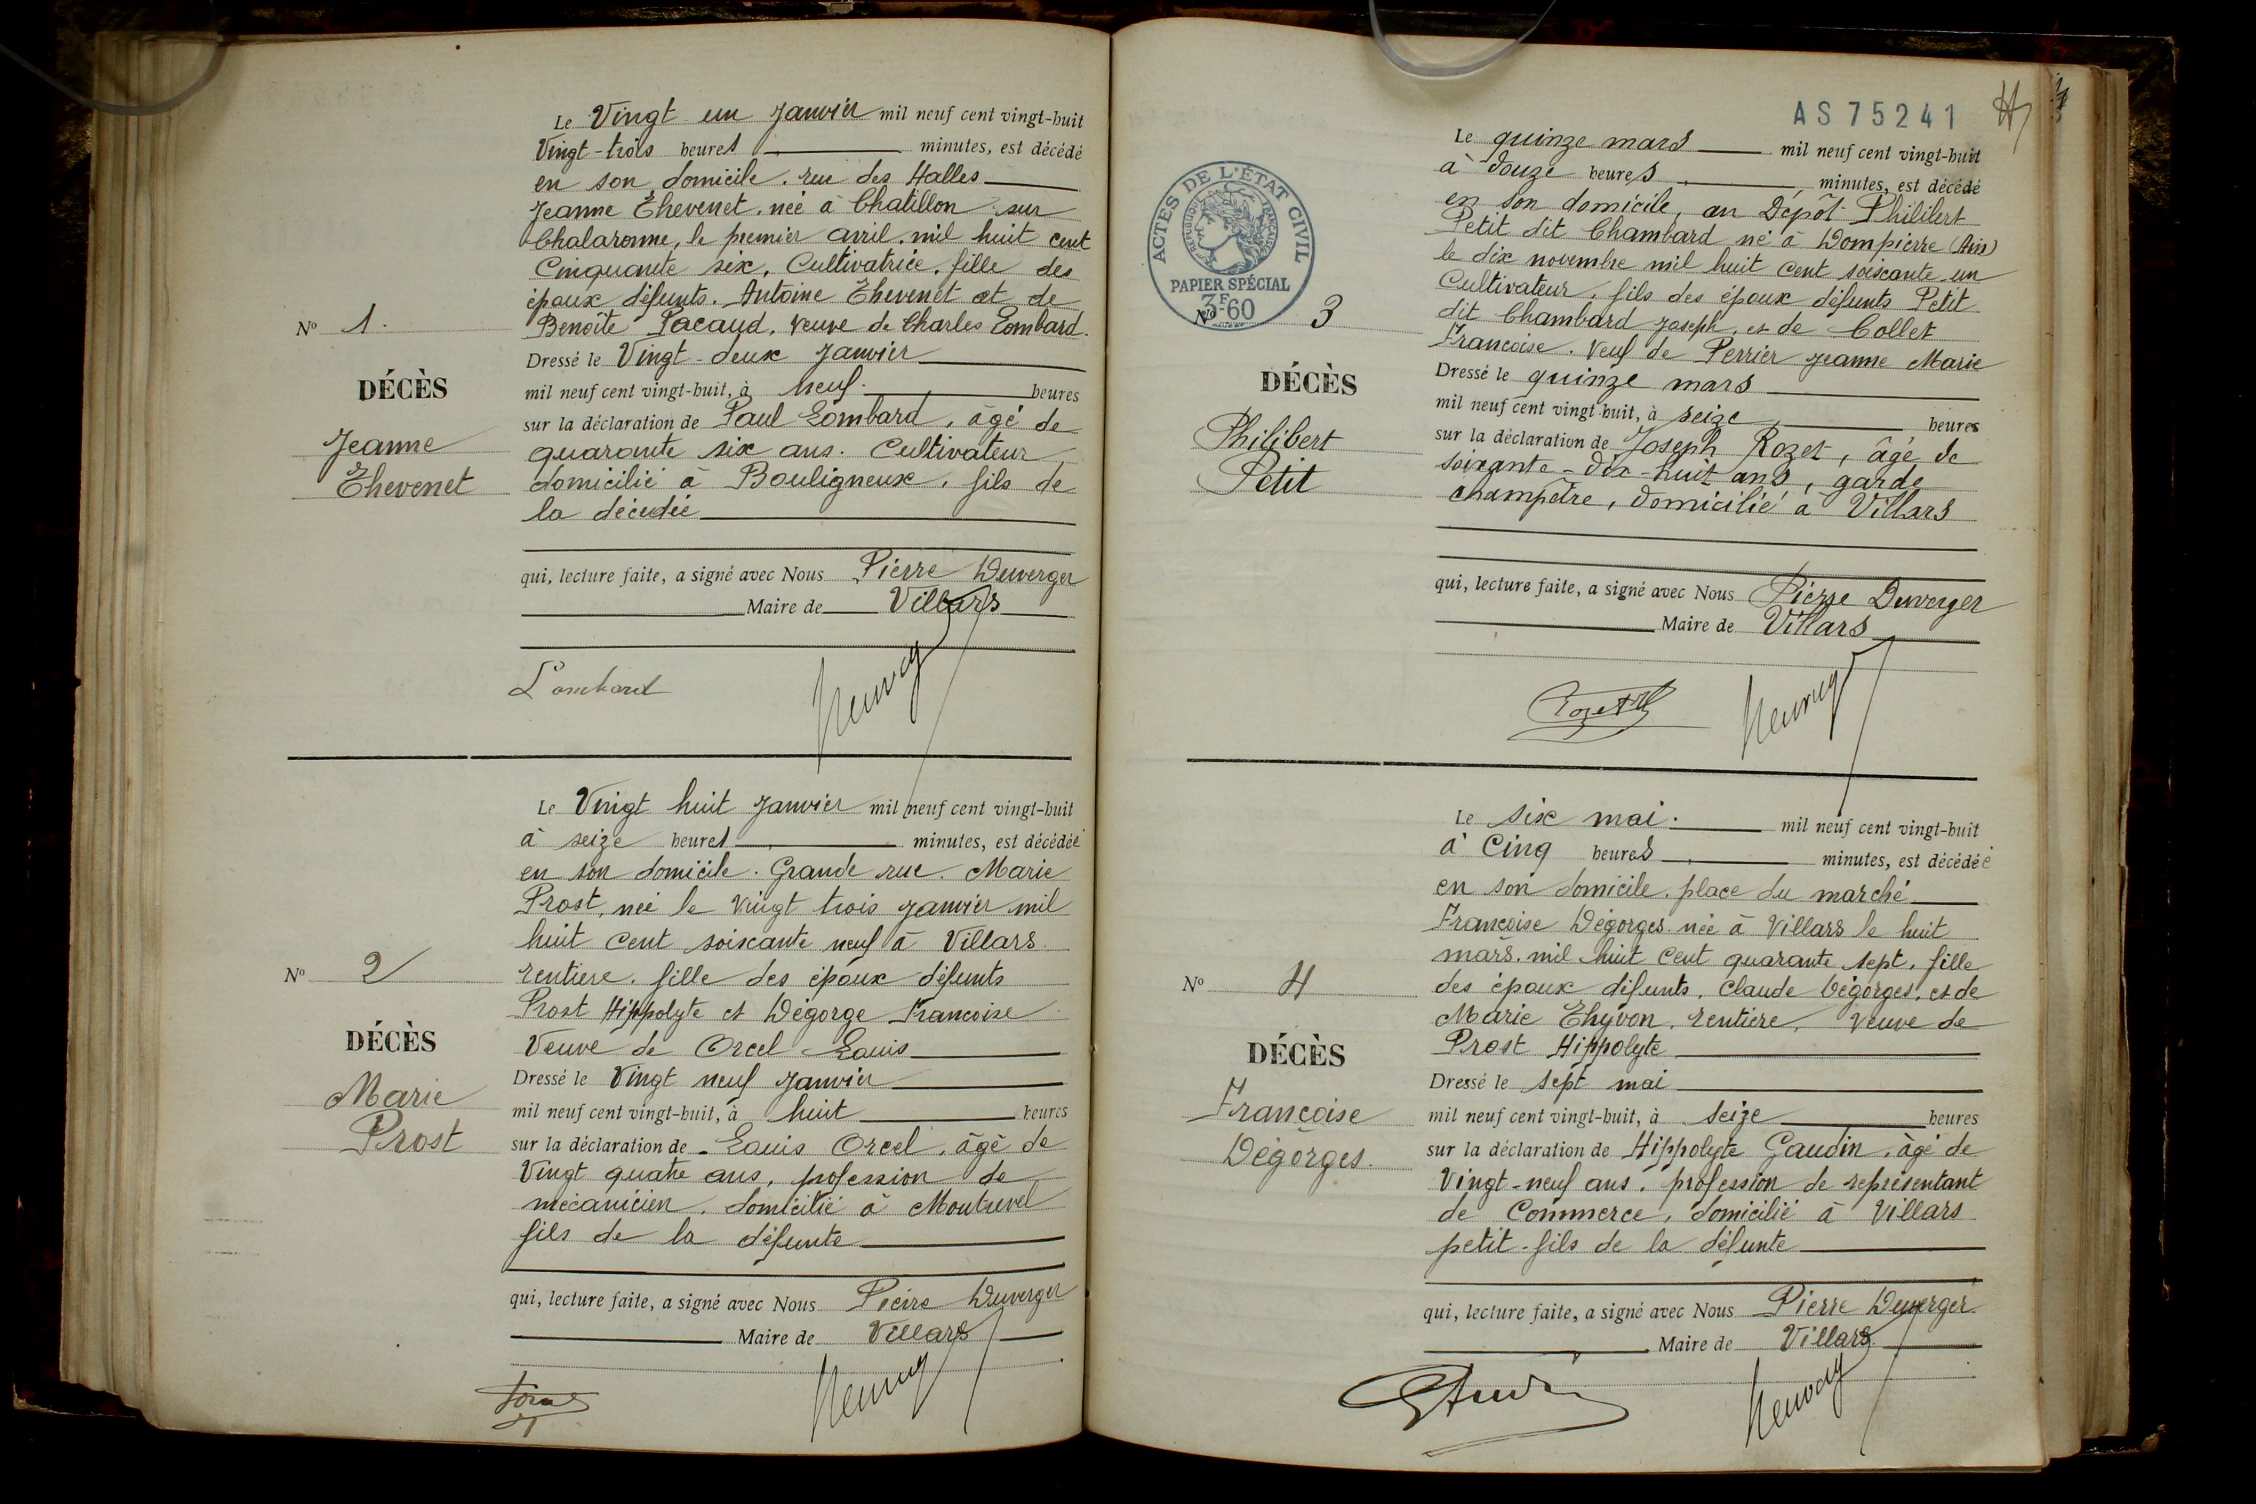 Le Vingt un Janvier mil neuf cent vingt-huit
Vingt-trois heures minutes, est décédé
en son domicile. rue des Halles
Jeanne Thevenet. née à Chatillon sur
Chalaronne, le premier avril. mil huit cent
Cinquante six. Cultivatrice. fille des
époux défunts. Antoine Thevenet et de
Benoîte Pacaud. veuve de Charles Lombard.
Dressé le Vingt-deux Janvier
mil neuf cent vingt-huit, à neuf. heures
sur la déclaration de Paul Lombard, âgé de
quarante six ans. Cultivateur
domicilié à Bouligneux, fils de
la décédée
qui, lecture faite, a signé avec Nous Pierre Duverger
Maire de Villars
Nº 1.
DÉCÈS
Jeanne
Thevenet
Lombard
Le Vingt huit Janvier mil neuf cent vingt-huit
à seize heures minutes, est décédée
en son domicile. Grande rue. Marie
Prost, née le vingt trois janvier mil
huit cent soixante neuf à Villars
rentière. fille des époux défunts
Prost Hippolyte et Dégorge Francoise
Veuve de Orcel Louis
Dressé le Vingt neuf Janvier
mil neuf cent vingt-huit, à huit heures
sur la déclaration de Louis Orcel, âgé de
Vingt quatre ans, profession de
mécanicien. domicilié à Montrevel
fils de la défunte
qui, lecture faite, a signé avec Nous Pierre Duverger
Maire de Villars
Nº 2
DÉCÈS
Marie
Prost
AS 75241
4
ACTES DE L'ÉTAT CIVIL
RÉPUBLIQUE FRANÇAISE
PAPIER SPÉCIAL
3F60
Le quinze mars mil neuf cent vingt-huit
à douze heures minutes, est décédé
en son domicile, au Dépôt Philibert
Petit dit Chambard né à Dompierre (Ain)
le dix novembre mil huit cent soixante un
Cultivateur, fils des époux défunts Petit
dit Chambard Joseph, et de Collet
Francoise. Veuf de Perrier Jeanne Marie
Dressé le quinze mars
mil neuf cent vingt-huit, à seize heures
sur la déclaration de Joseph Rozet, âgé de
soixante-dix-huit ans, garde
champêtre, domicilié à Villars
qui, lecture faite, a signé avec Nous Pierre Duverger
Maire de Villars
Nº 3
DÉCÈS
Philibert
Petit
Rozet
Le six mai. mil neuf cent vingt-huit
à Cinq heures minutes, est décédée
en son domicile. place du marché
Françoise Dégorges née à Villars le huit
mars. mil huit cent quarante sept, fille
des époux défunts. Claude Dégorges. et de
Marie Thyvon. rentière. Veuve de
Prost Hippolyte
Dressé le sept mai
mil neuf cent vingt-huit, à seize heures
sur la déclaration de Hippolyte Gaudin. âgé de
Vingt-neuf ans. profession de représentant
de Commerce. domicilié à Villars
petit-fils de la défunte
qui, lecture faite, a signé avec Nous Pierre Duverger
Maire de Villars
Nº 4
DÉCÈS
Françoise
Dégorges.